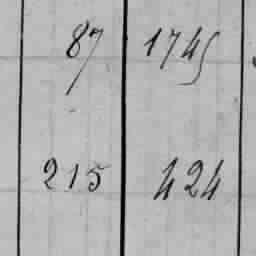 87 1745
215 424